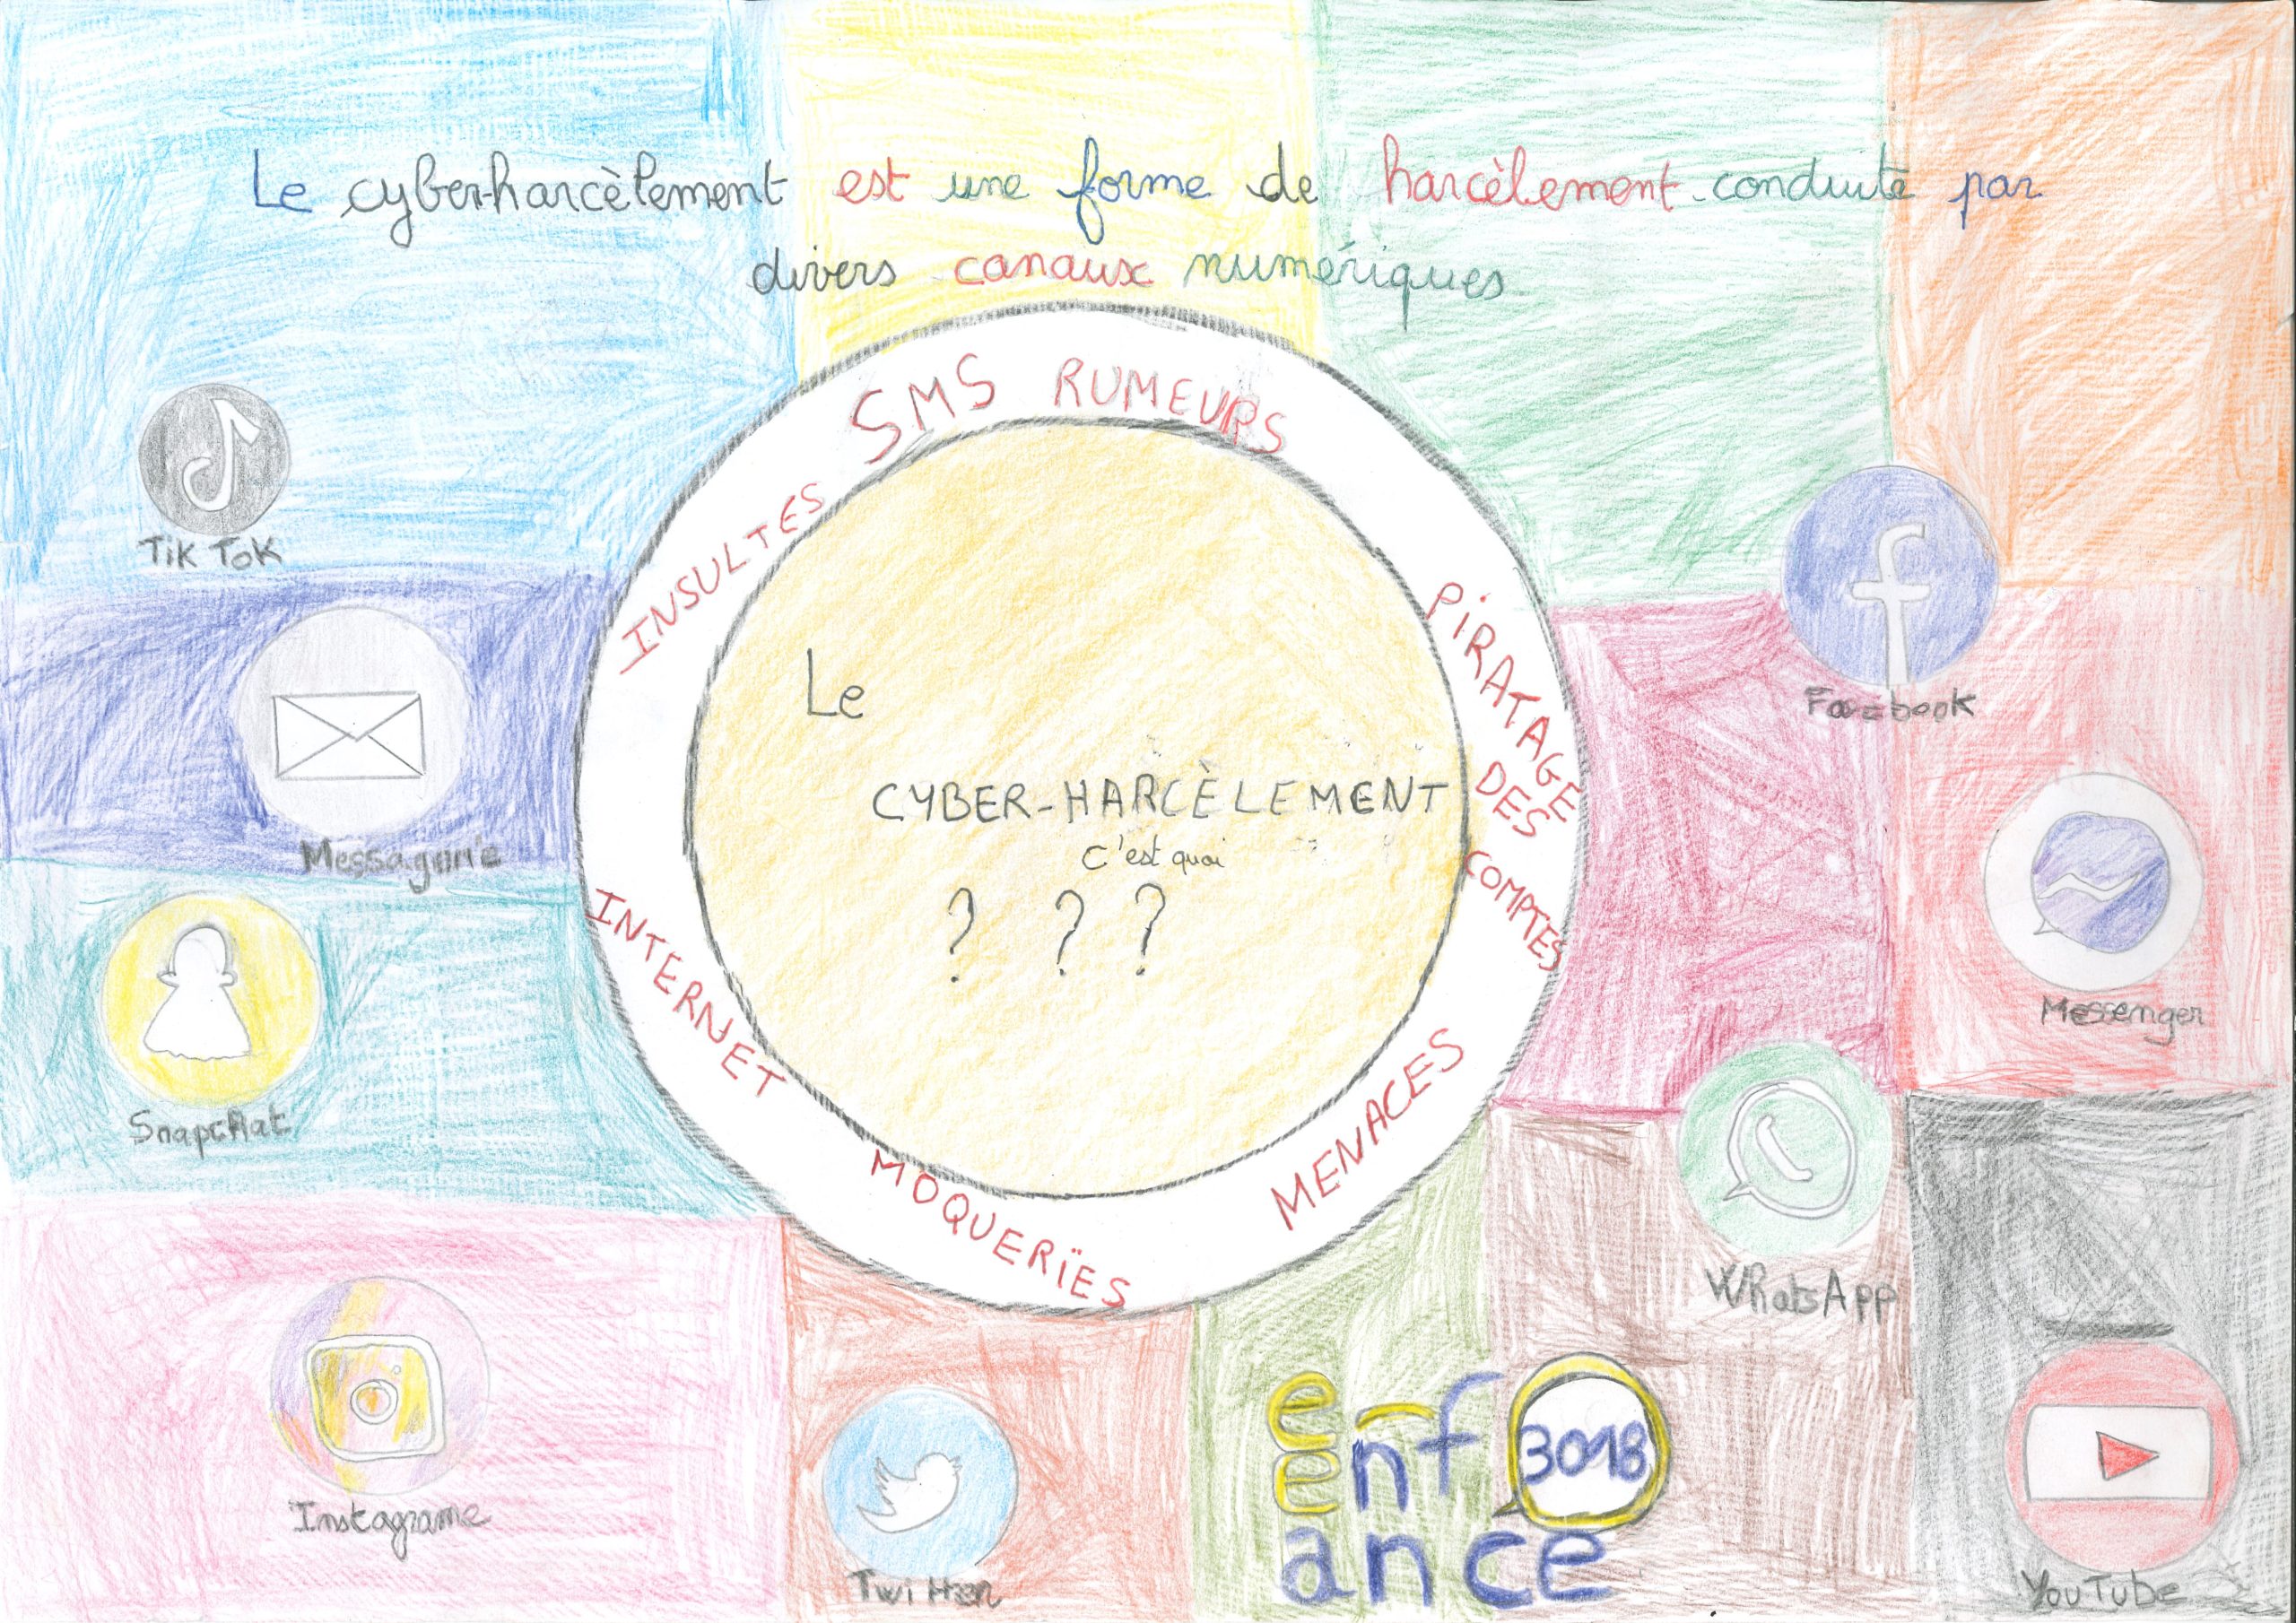 Le cyber-harcèlement est une forme de harcèlement conduite par
divers canaux numériques
SMS
RUMEURS
INSULTES
PIRATAGE
DES
COMPTES
INTERNET
MOQUERÏES
MENACES
Le
CYBER-HARCÈLEMENT
c'est quoi
? ? ?
Tik Tok
Messagerie
Snapchat
Instagrame
Twitter
Facebook
Messenger
WhatsApp
YouTube
e
enf
3018
ance